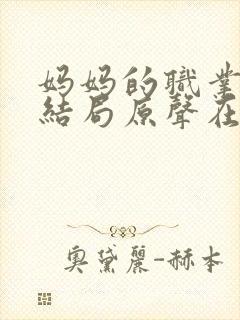 妈妈的職業
結局原聲在
奧黛麗-赫本